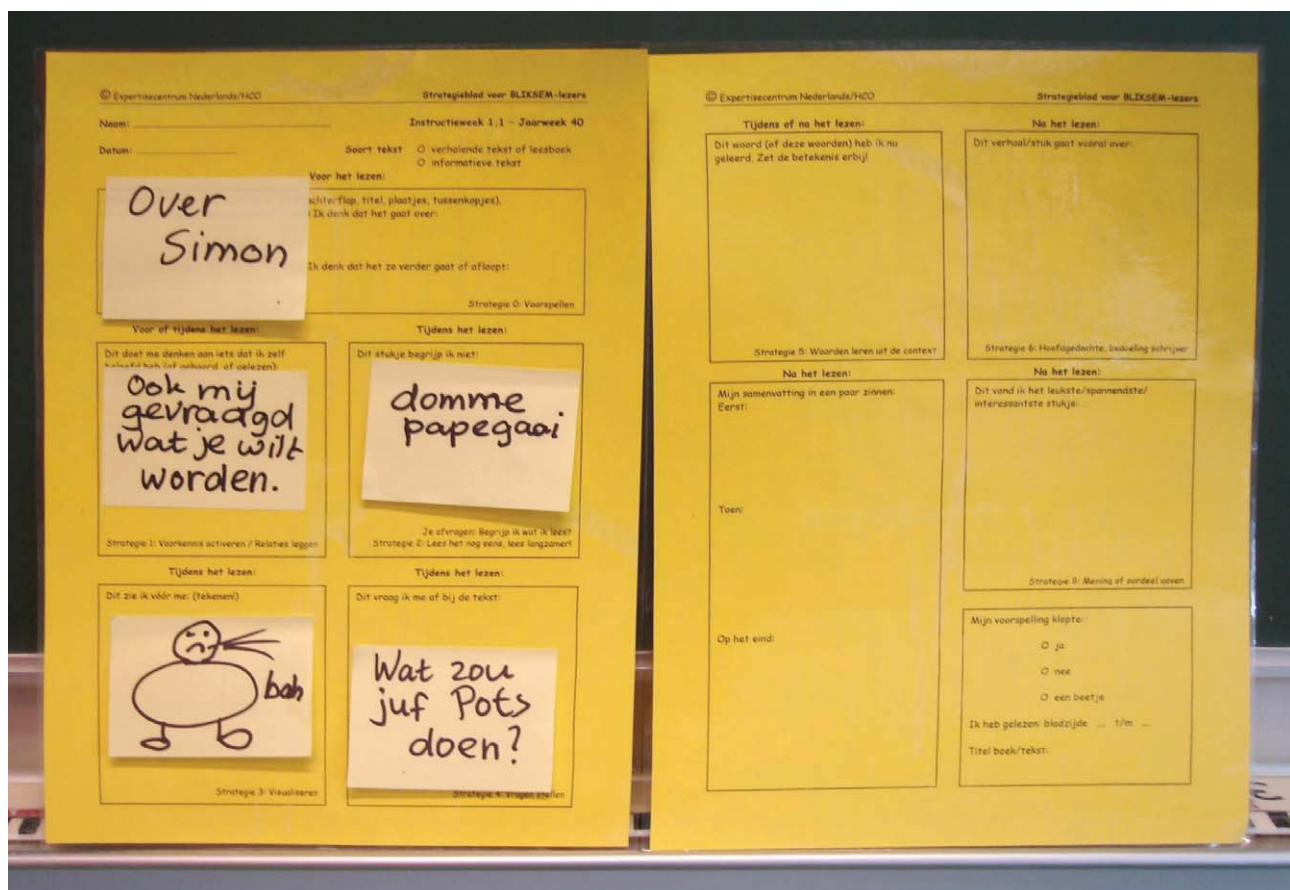 © Expertisecentrum Nederlands/HCO
Strategieblad voor BLIKSEM-lezers
Naam:
Instructieweek 1.1 - Jaarweek 40
Datum:
Soort tekst O verhalende tekst of leesboek
O informatieve tekst
Voor het lezen:
Over
Simon
achterflap, titel, plaatjes, tussenkopjes).
Ik denk dat het gaat over:
Ik denk dat het zo verder gaat of afloopt:
Strategie 0: Voorspellen
Voor of tijdens het lezen:
Dit doet me denken aan iets dat ik zelf
beleefd heb (of gehoord, of gelezen):
Ook mij
gevraagd
wat je wilt
worden.
Strategie 1: Voorkennis activeren / Relaties leggen
Tijdens het lezen:
Dit stukje begrijp ik niet:
domme
papegaai
Je afvragen: Begrijp ik wat ik lees?
Strategie 2: Lees het nog eens, lees langzamer!
Tijdens het lezen:
Dit zie ik vóór me: (tekenen!)
bah
Strategie 3: Visualiseren
Tijdens het lezen:
Dit vraag ik me af bij de tekst:
Wat zou
juf Pots
doen?
Strategie 4: Vragen stellen
© Expertisecentrum Nederlands/HCO
Strategieblad voor BLIKSEM-lezers
Tijdens of na het lezen:
Dit woord (of deze woorden) heb ik nu
geleerd. Zet de betekenis erbij!
Strategie 5: Woorden leren uit de context
Na het lezen:
Dit verhaal/stuk gaat vooral over:
Strategie 6: Hoofdgedachte, bedoeling schrijver
Na het lezen:
Mijn samenvatting in een paar zinnen:
Eerst:
Toen:
Op het eind:
Na het lezen:
Dit vond ik het leukste/spannendste/
interessantste stukje:
Strategie 8: Mening of oordeel geven
Mijn voorspelling klopte:
O ja
O nee
O een beetje
Ik heb gelezen: bladzijde ... t/m ...
Titel boek/tekst: